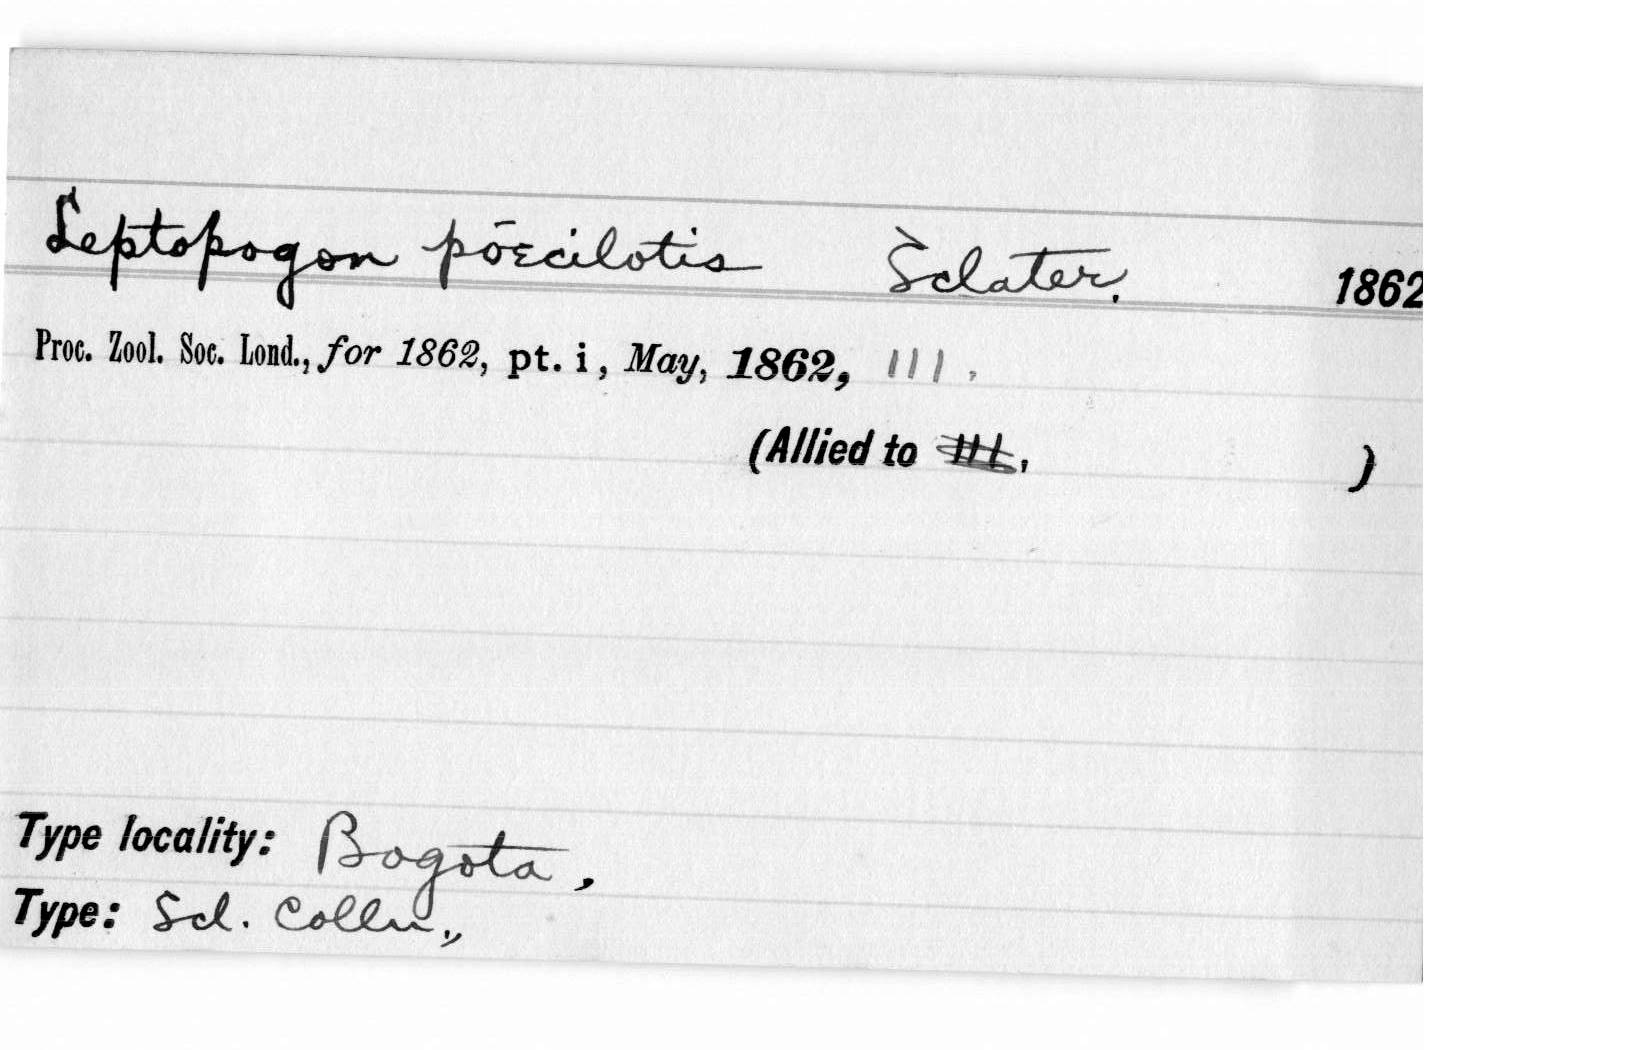 Leptopogon pōecilotis Sclater. 1862
Proc. Zool. Soc. Lond., for 1862, pt. i, May, 1862, 111.
(Allied to )
Type locality: Bogota,
Type: Scl. Colln.,